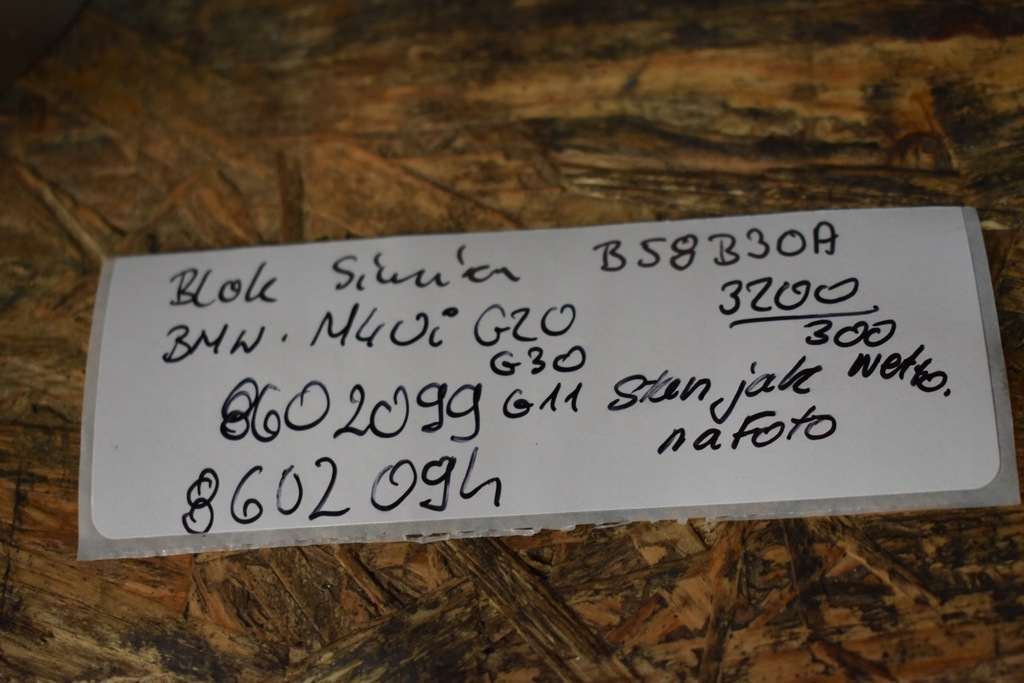 Blok Silnika B58B30A
3200
BMW. M40i G20
300
G30
netto.
8602099 G11 Stan jak
na Foto
8602094